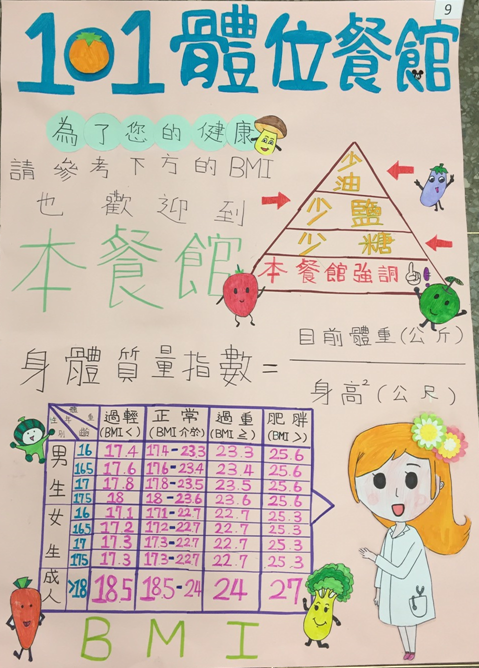 9
101體位餐館
為了您的健康
請參考下方的BMI
也歡迎到
本餐館
少油
少鹽
少糖
本餐館強調
身體質量指數=
目前體重(公斤)
身高²(公尺)
性別 年齡 過輕(BMI<) 正常(BMI介於) 過重(BMI≧) 肥胖(BMI≧)
男生 16 17.4 17.4-23.3 23.3 25.6
16.5 17.6 17.6-23.4 23.4 25.6
17 17.8 17.8-23.5 23.5 25.6
17.5 18 18-23.6 23.6 25.6
女生 16 17.1 17.1-22.7 22.7 25.3
16.5 17.2 17.2-22.7 22.7 25.3
17 17.3 17.3-22.7 22.7 25.3
17.5 17.3 17.3-22.7 22.7 25.3
成人 >18 18.5 18.5-24 24 27
BMI